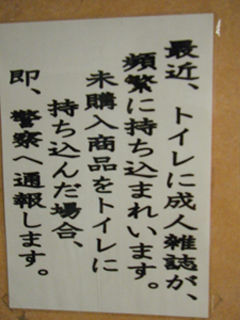 最近、トイレに成人雑誌が、
頻繁に持ち込まれいます。
未購入商品をトイレに
持ち込んだ場合、
即、警察へ通報します。